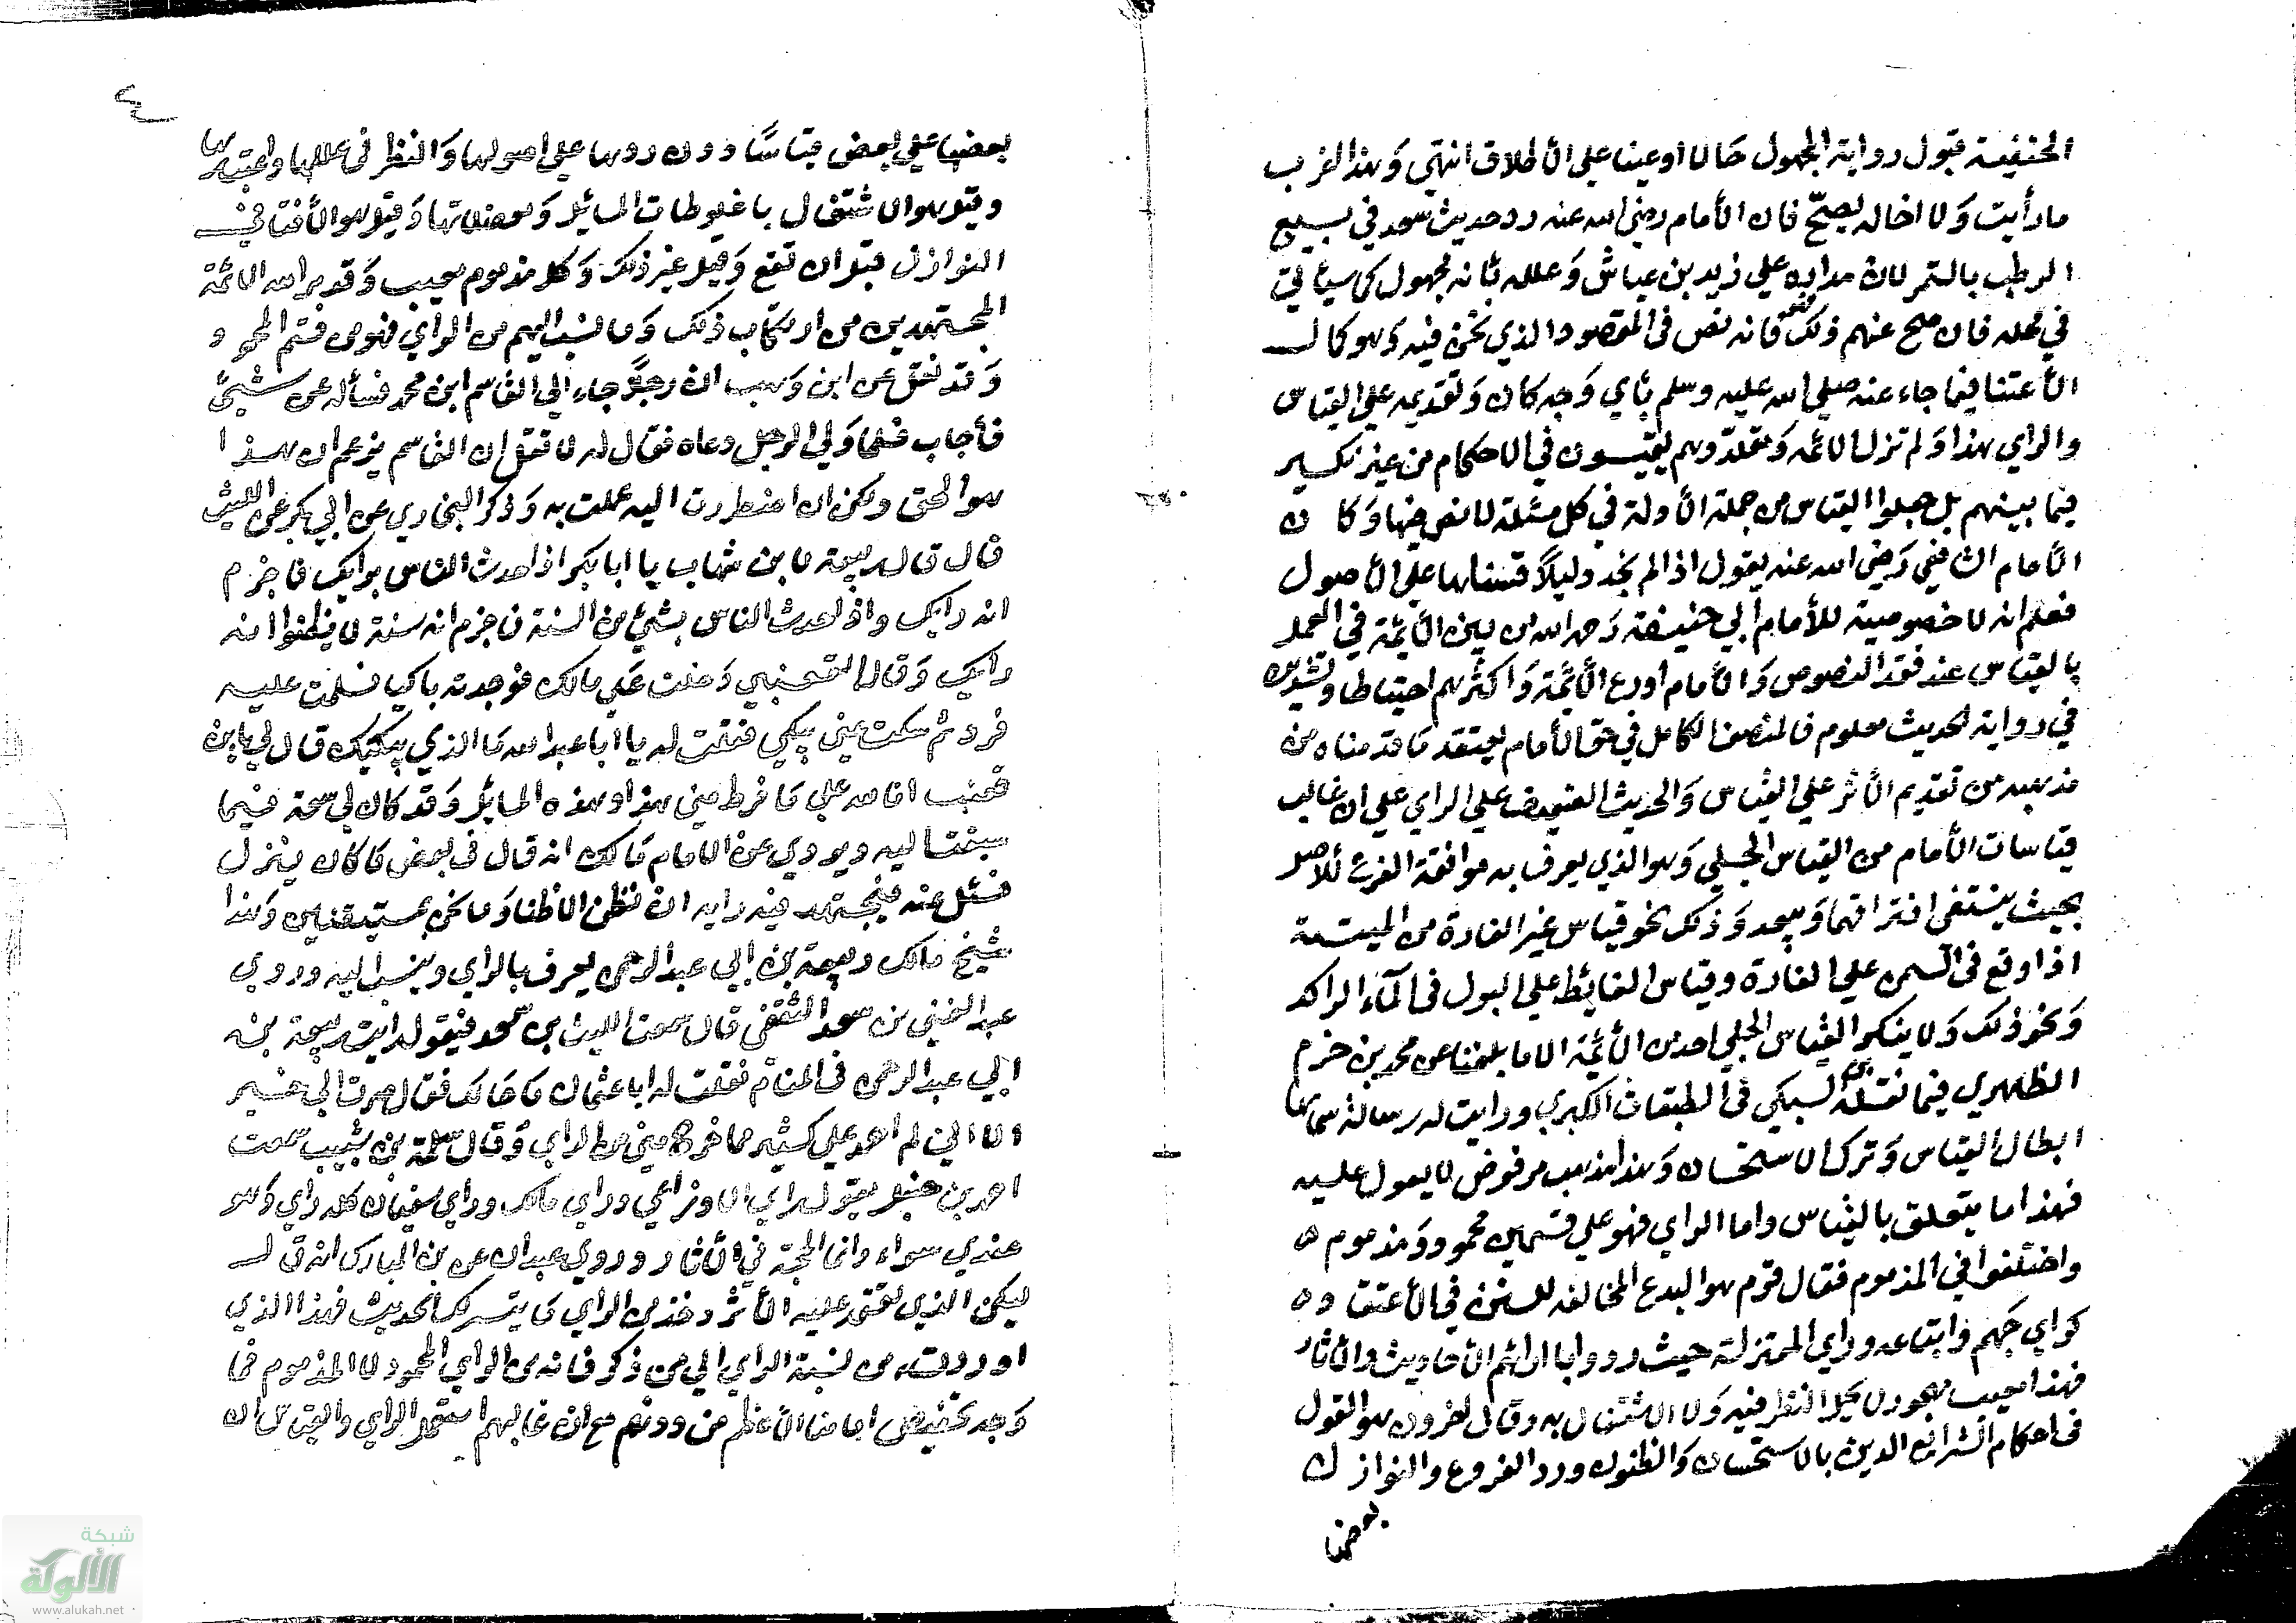 الحنفية قبول رواية المجهول حالا او عينا على الأطلاق انتهى وَهذا اغرب
ما رأيت وَلا اخاله يصحّ فان الأمام رضى الله عنه رد حديث سعد في بيع
الرطب بالتمر لان مداره على زيد بن عياش وَعلله بأنه مجهول كما سيأتي
في محله فان صح عنهم ذلك فانه نص فى المقصود الذي نحن فيه وَهو كمال
الأعتنا فيما جاء عنه صلى الله عليه وسلم بأي وَجه كان وَتقديمه على القياس
والراي هذا وَلم تزل الائمه وَمقلدوهم يقيسون في الاحكام من غير نكير
فيما بينهم بل جعلوا القياس من جملة الأدلة في كل مسئلة لا نص فيها وَكان
الأمام الشافعي رَضي الله عنه يقول اذا لم نجد دليلاً قسناها على الأصول
فعلم انه لا خصوصية للأمام أبي حنيفة رَحمه الله من بين الأئمة في العمل
بالقياس عند فقد النصوص وَالأمام أورع الأئمة وَاكثرهم احتياطا وتشديده
في رواية الحديث معلوم فالمنصف الكامل في حق الأمام يعتقد مَا قدمناه من
مذهبه من تقديم الأثر على القياس وَالحديث الضعيف على الراي على ان غالب
قياسات الأمام من القياس الجلي وَهو الذي يعرف به موافقة الفرع للأصل
بحيث ينتفى افتراقهما وَيبعد وَذلك نحو قياس غير الفارة من الميتة
اذا وقع فى السمن على الفارة وقياس الغايط على البول فى المآء الراكد
وَنحو ذلك وَلا ينكر القياس الجلي احد من الأئمة الا ما بلغنا عن محمد بن حزم
الظاهري فيما نقله السبكي فى الطبقات الكبرى ورايت له رسالة سماها
ابطال القياس وَترك الاستحسان وَهذا مذهب مرفوض لا يعول عليه
فهذا ما يتعلق بالقياس واما الراي فهو على قسمين محمود وَمذموم ه
واختلفوا في المذموم فقال قوم هو البدع المخالفه للسنن في الأعتقاد ه
كراي جَهم واتباعه وراي المعتزلة حيث ردوا بارائهم الأحاديث والأثار
فهذا معيب مهجور لا يحل النظر فيه وَلا الاشتغال به وقال اخرون هو القول
فى احكام الشرايع الدين بالاستحسان وَالظنون ورد الفروع والنوازل
بعضها
بعضها على بعض قياسًا دون ردها على اصولها وَالنظر فى عللها واعتبارها
وقيل هو الاشتغال باغلوطات المسائل وَمعضلاتها وَقيل هو الأفتا فى
النوازل قبل ان تقع وَقيل غير ذلك وَكل مذموم معيب وَقد برا الله الائمة
المجتهدين من ارتكاب ذلك وَما نسب اليهم من الراي فهو من قسم المحمود
وَقد نقل عن ابن وَهب ان رجلاً جاء الي القاسم ابن محمد فسأله عن شيئ
فأجاب فلما وَلي الرجل دعاه فقال له لا تقل ان القاسم يزعم ان هذا
هو الحق ولكن ان اضطررت اليه عملت به وَذكر البخاري عن ابي بكر عن الليث
قال قال ربيعة لابن شهاب يا ابا بكر اذا حدث الناس برايك فاخبرهم
انه رايك واذا حدث الناس بشئ من السنة فاخبرهم انه سنة لا يظنوا انه
رايك وَقال القعنبي دَخلت عَلى مالك فوجدته باكيا فسلمت عليه
فرد ثم سكت عني يبكي فقلت له يا أبا عبد الله مَا الذي يبكيك قال لي يا ابن
قعنب انا لله على مَا فرط مني هذا وهذه المسائل وَقد كان لي سعة فيما
سبقت اليه ويروي عن الامام مَالك انه قال فى بعض مَا كان ينزل
فسئل عنه فيجتهد فيه رايه ان نظن الا ظنا وَما نحن بمستيقنين وَهذا
شيخ مالك ربيعة بن ابي عبد الرحمن يعرف بالراي وينسب اليه وروي
عبد الغني بن سعد الثقفى قال سمعنا الليث بن سعد فيقول رايت ربيعة بن
ابي عبد الرحمن فى المنام فقلت له ابا عثمان مَا حَالك فقال صرت الى خير
الا اني لم احمد على كثير مما خرج منى من الراي وَقال سلمة بن شبيب سمعت
احمد بن حنبل يقول راي الاوزاعي وراي مالك وراي سفيان كله راي وَهو
عندي سواء وانما الحجة في الأثار وروي عبدان عن بن المبارك انه قال
ليكن الذي تعتمد عليه الأثر وخذ من الراي مَا يفسر لك الحديث فهذا الذي
اوردت من نسبة الراي الي من ذكر فانه من الراي المحمود لا المذموم فما
وَجه تخصيص امامنا الأعظم من دونهم مع ان غالبهم استعمل الراي والقياس ان
شبكة
الألوكة
www.alukah.net